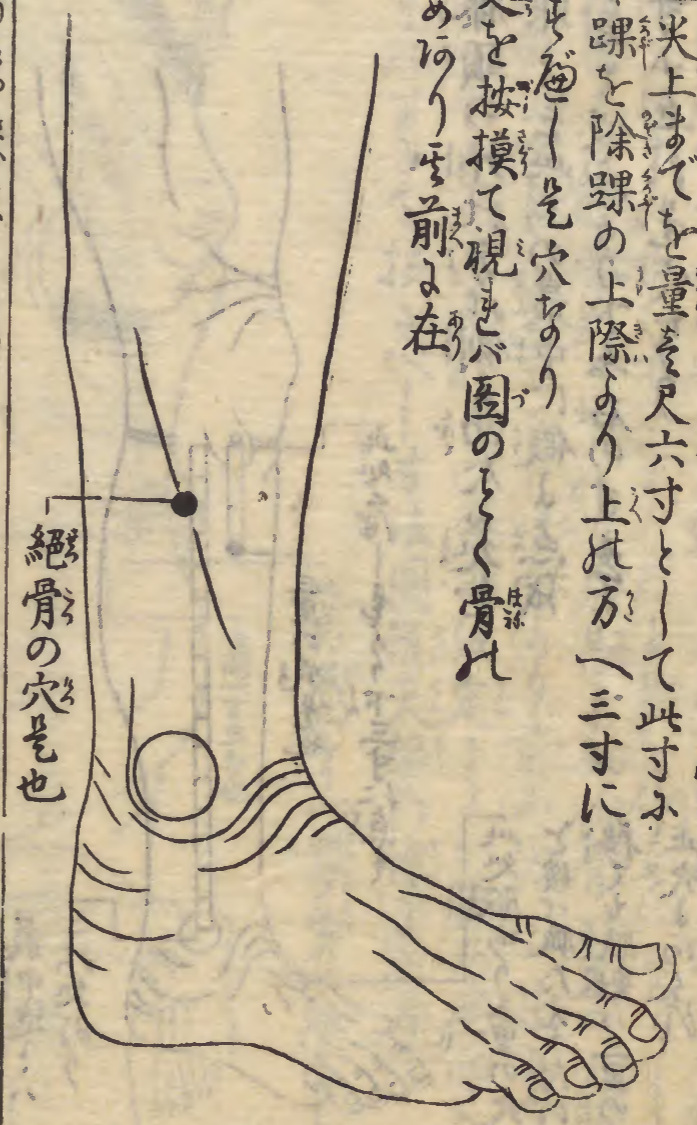 尖上までを量壱尺六寸として此寸に
踝を除踝の上際より上の方へ三寸に
是穴なり
を按摸て視れバ圖のごとく骨の
めあり其前に在
絕骨の穴是也